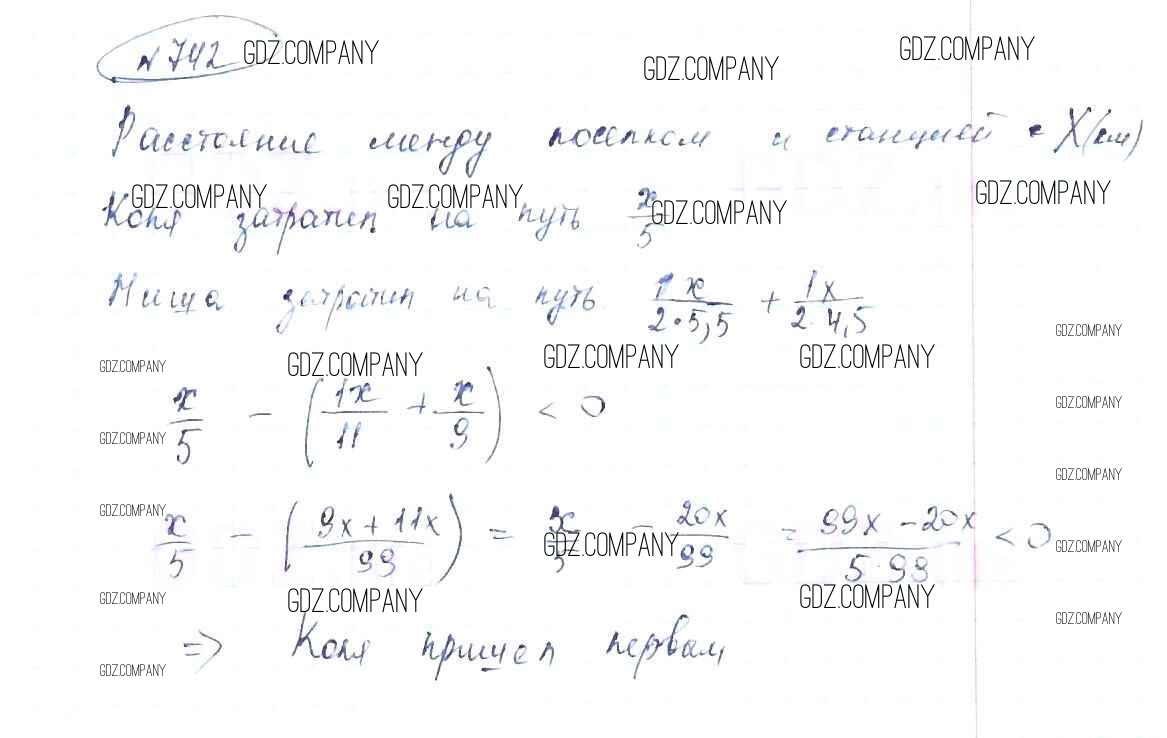 № 742 GDZ.COMPANY GDZ.COMPANY GDZ.COMPANY
Расстояние между поселком и станцией - X(км)
GDZ.COMPANY GDZ.COMPANY GDZ.COMPANY
Коля затратил на путь x/5 GDZ.COMPANY
Миша затратил на путь 1x/(2·5,5) + 1x/(2·4,5)
GDZ.COMPANY
GDZ.COMPANY GDZ.COMPANY GDZ.COMPANY GDZ.COMPANY
x/5 - (1x/11 + x/9) < 0
GDZ.COMPANY
GDZ.COMPANY
GDZ.COMPANY
GDZ.COMPANY
x/5 - ((9x + 11x)/99) = x/5 - 20x/99 = (99x - 20x)/(5·99) < 0
GDZ.COMPANY GDZ.COMPANY
GDZ.COMPANY GDZ.COMPANY GDZ.COMPANY
GDZ.COMPANY
=> Коля пришел первым
GDZ.COMPANY